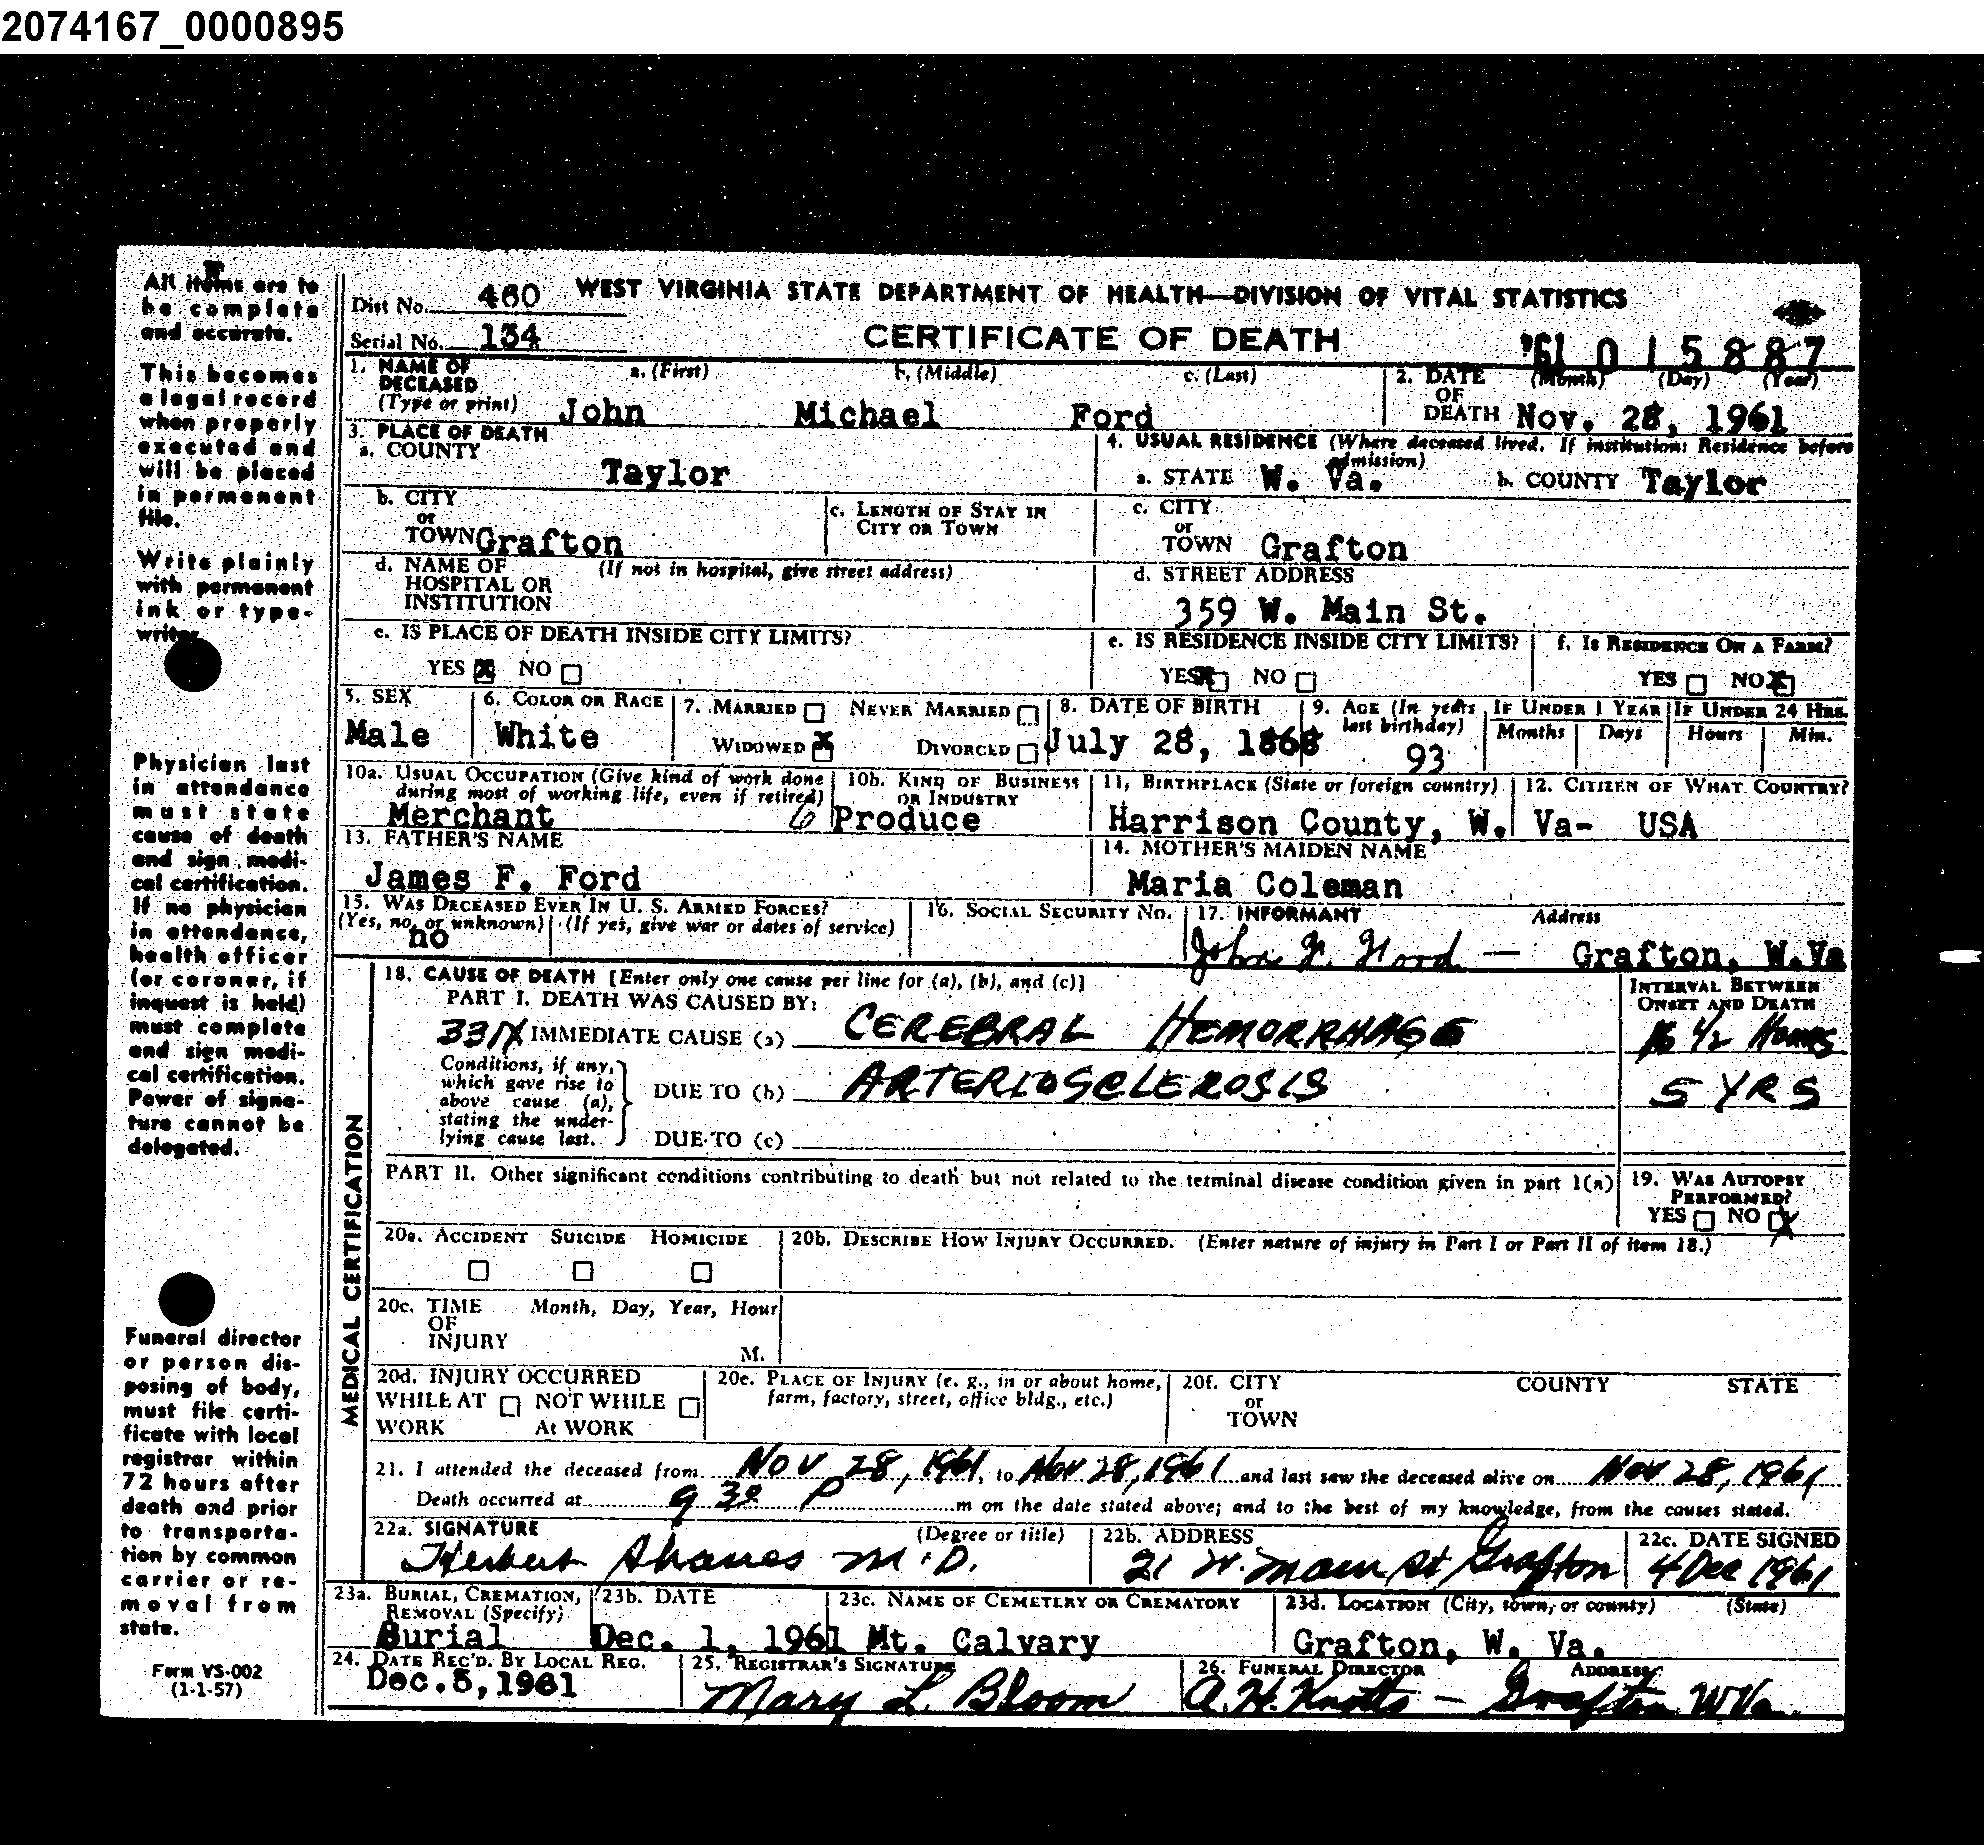 2074167_0000895
All items are to
be complete
and accurate.
This becomes
a legal record
when properly
executed and
will be placed
in permanent
file.
Write plainly
with permanent
ink or type-
writer
Physician last
in attendance
must state
cause of death
and sign medi-
cal certification.
If no physician
in attendance,
health officer
(or coroner, if
inquest is held)
must complete
and sign medi-
cal certification.
Power of signa-
ture cannot be
delegated.
Funeral director
or person dis-
posing of body,
must file certi-
ficate with local
registrar within
72 hours after
death and prior
to transporta-
tion by common
carrier or re-
moval from
state.
Form VS-002
(1-1-57)
Dist No. 460 WEST VIRGINIA STATE DEPARTMENT OF HEALTH—DIVISION OF VITAL STATISTICS
Serial No. 134 CERTIFICATE OF DEATH '61 015887
1. NAME OF DECEASED (Type or print) a. (First) b. (Middle) c. (Last) 2. DATE OF DEATH (Month) (Day) (Year)
John Michael Ford Nov. 28, 1961
3. PLACE OF DEATH 4. USUAL RESIDENCE (Where deceased lived. If institution: Residence before admission)
a. COUNTY Taylor a. STATE W. Va. b. COUNTY Taylor
b. CITY or TOWN Grafton c. LENGTH OF STAY IN CITY OR TOWN c. CITY or TOWN Grafton
d. NAME OF HOSPITAL OR INSTITUTION (If not in hospital, give street address) d. STREET ADDRESS
359 W. Main St.
e. IS PLACE OF DEATH INSIDE CITY LIMITS? e. IS RESIDENCE INSIDE CITY LIMITS? f. IS RESIDENCE ON A FARM?
YES X NO YES X NO YES NO X
5. SEX 6. COLOR OR RACE 7. MARRIED NEVER MARRIED 8. DATE OF BIRTH 9. AGE (In years last birthday) IF UNDER 1 YEAR IF UNDER 24 HRS.
Male White WIDOWED X DIVORCED July 28, 1868 93 Months Days Hours Min.
10a. USUAL OCCUPATION (Give kind of work done during most of working life, even if retired) 10b. KIND OF BUSINESS OR INDUSTRY 11. BIRTHPLACE (State or foreign country) 12. CITIZEN OF WHAT COUNTRY?
Merchant 6 Produce Harrison County, W. Va- USA
13. FATHER'S NAME 14. MOTHER'S MAIDEN NAME
James F. Ford Maria Coleman
15. WAS DECEASED EVER IN U. S. ARMED FORCES? 16. SOCIAL SECURITY NO. 17. INFORMANT Address
(Yes, no, or unknown) (If yes, give war or dates of service)
no John F. Ford — Grafton, W.Va
MEDICAL CERTIFICATION
18. CAUSE OF DEATH [Enter only one cause per line for (a), (b), and (c)] INTERVAL BETWEEN ONSET AND DEATH
PART I. DEATH WAS CAUSED BY:
331X IMMEDIATE CAUSE (a) CEREBRAL HEMORRHAGE 1/2 Hours
Conditions, if any, which gave rise to above cause (a), stating the under-lying cause last. DUE TO (b) ARTERIOSCLEROSIS 5 YRS
DUE TO (c)
PART II. Other significant conditions contributing to death but not related to the terminal disease condition given in part 1(a) 19. WAS AUTOPSY PERFORMED?
YES NO X
20a. ACCIDENT SUICIDE HOMICIDE 20b. DESCRIBE HOW INJURY OCCURRED. (Enter nature of injury in Part I or Part II of item 18.)
20c. TIME OF INJURY Month, Day, Year, Hour
M.
20d. INJURY OCCURRED 20e. PLACE OF INJURY (e. g., in or about home, farm, factory, street, office bldg., etc.) 20f. CITY or TOWN COUNTY STATE
WHILE AT WORK NOT WHILE At WORK
21. I attended the deceased from Nov 28, 1961, to Nov 28, 1961 and last saw the deceased alive on Nov 28, 1961
Death occurred at 9 30 P m on the date stated above; and to the best of my knowledge, from the causes stated.
22a. SIGNATURE (Degree or title) 22b. ADDRESS 22c. DATE SIGNED
Herbert M.D. 21 W. Main St Grafton 4 Dec 1961
23a. BURIAL, CREMATION, REMOVAL (Specify) 23b. DATE 23c. NAME OF CEMETERY OR CREMATORY 23d. LOCATION (City, town, or county) (State)
Burial Dec. 1, 1961 Mt. Calvary Grafton, W. Va.
24. DATE REC'D. BY LOCAL REG. 25. REGISTRAR'S SIGNATURE 26. FUNERAL DIRECTOR ADDRESS
Dec. 5, 1961 Mary L. Bloom A. H. Knotts — Grafton W Va.